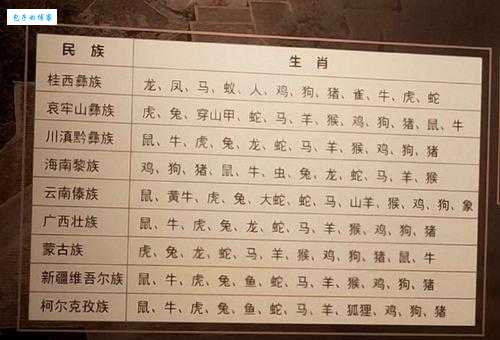 包子的博客
民族 生肖
桂西彝族 龙、凤、马、蚁、人、鸡、狗、猪、雀、牛、虎、蛇
哀牢山彝族 虎、兔、穿山甲、蛇、马、羊、猴、鸡、狗、猪、鼠、牛
川滇黔彝族 鼠、牛、虎、兔、龙、蛇、马、羊、猴、鸡、狗、猪
海南黎族 鸡、狗、猪、鼠、牛、虫、兔、龙、蛇、马、羊、猴
云南傣族 鼠、黄牛、虎、兔、大蛇、蛇、马、山羊、猴、鸡、狗、象
广西壮族 鼠、牛、虎、兔、龙、蛇、马、羊、猴、鸡、狗、猪
蒙古族 虎、兔、龙、蛇、马、羊、猴、鸡、狗、猪、鼠、牛
新疆维吾尔族 鼠、牛、虎、兔、鱼、蛇、马、羊、猴、鸡、狗、猪
柯尔克孜族 鼠、牛、虎、兔、鱼、蛇、马、羊、狐狸、鸡、狗、猪